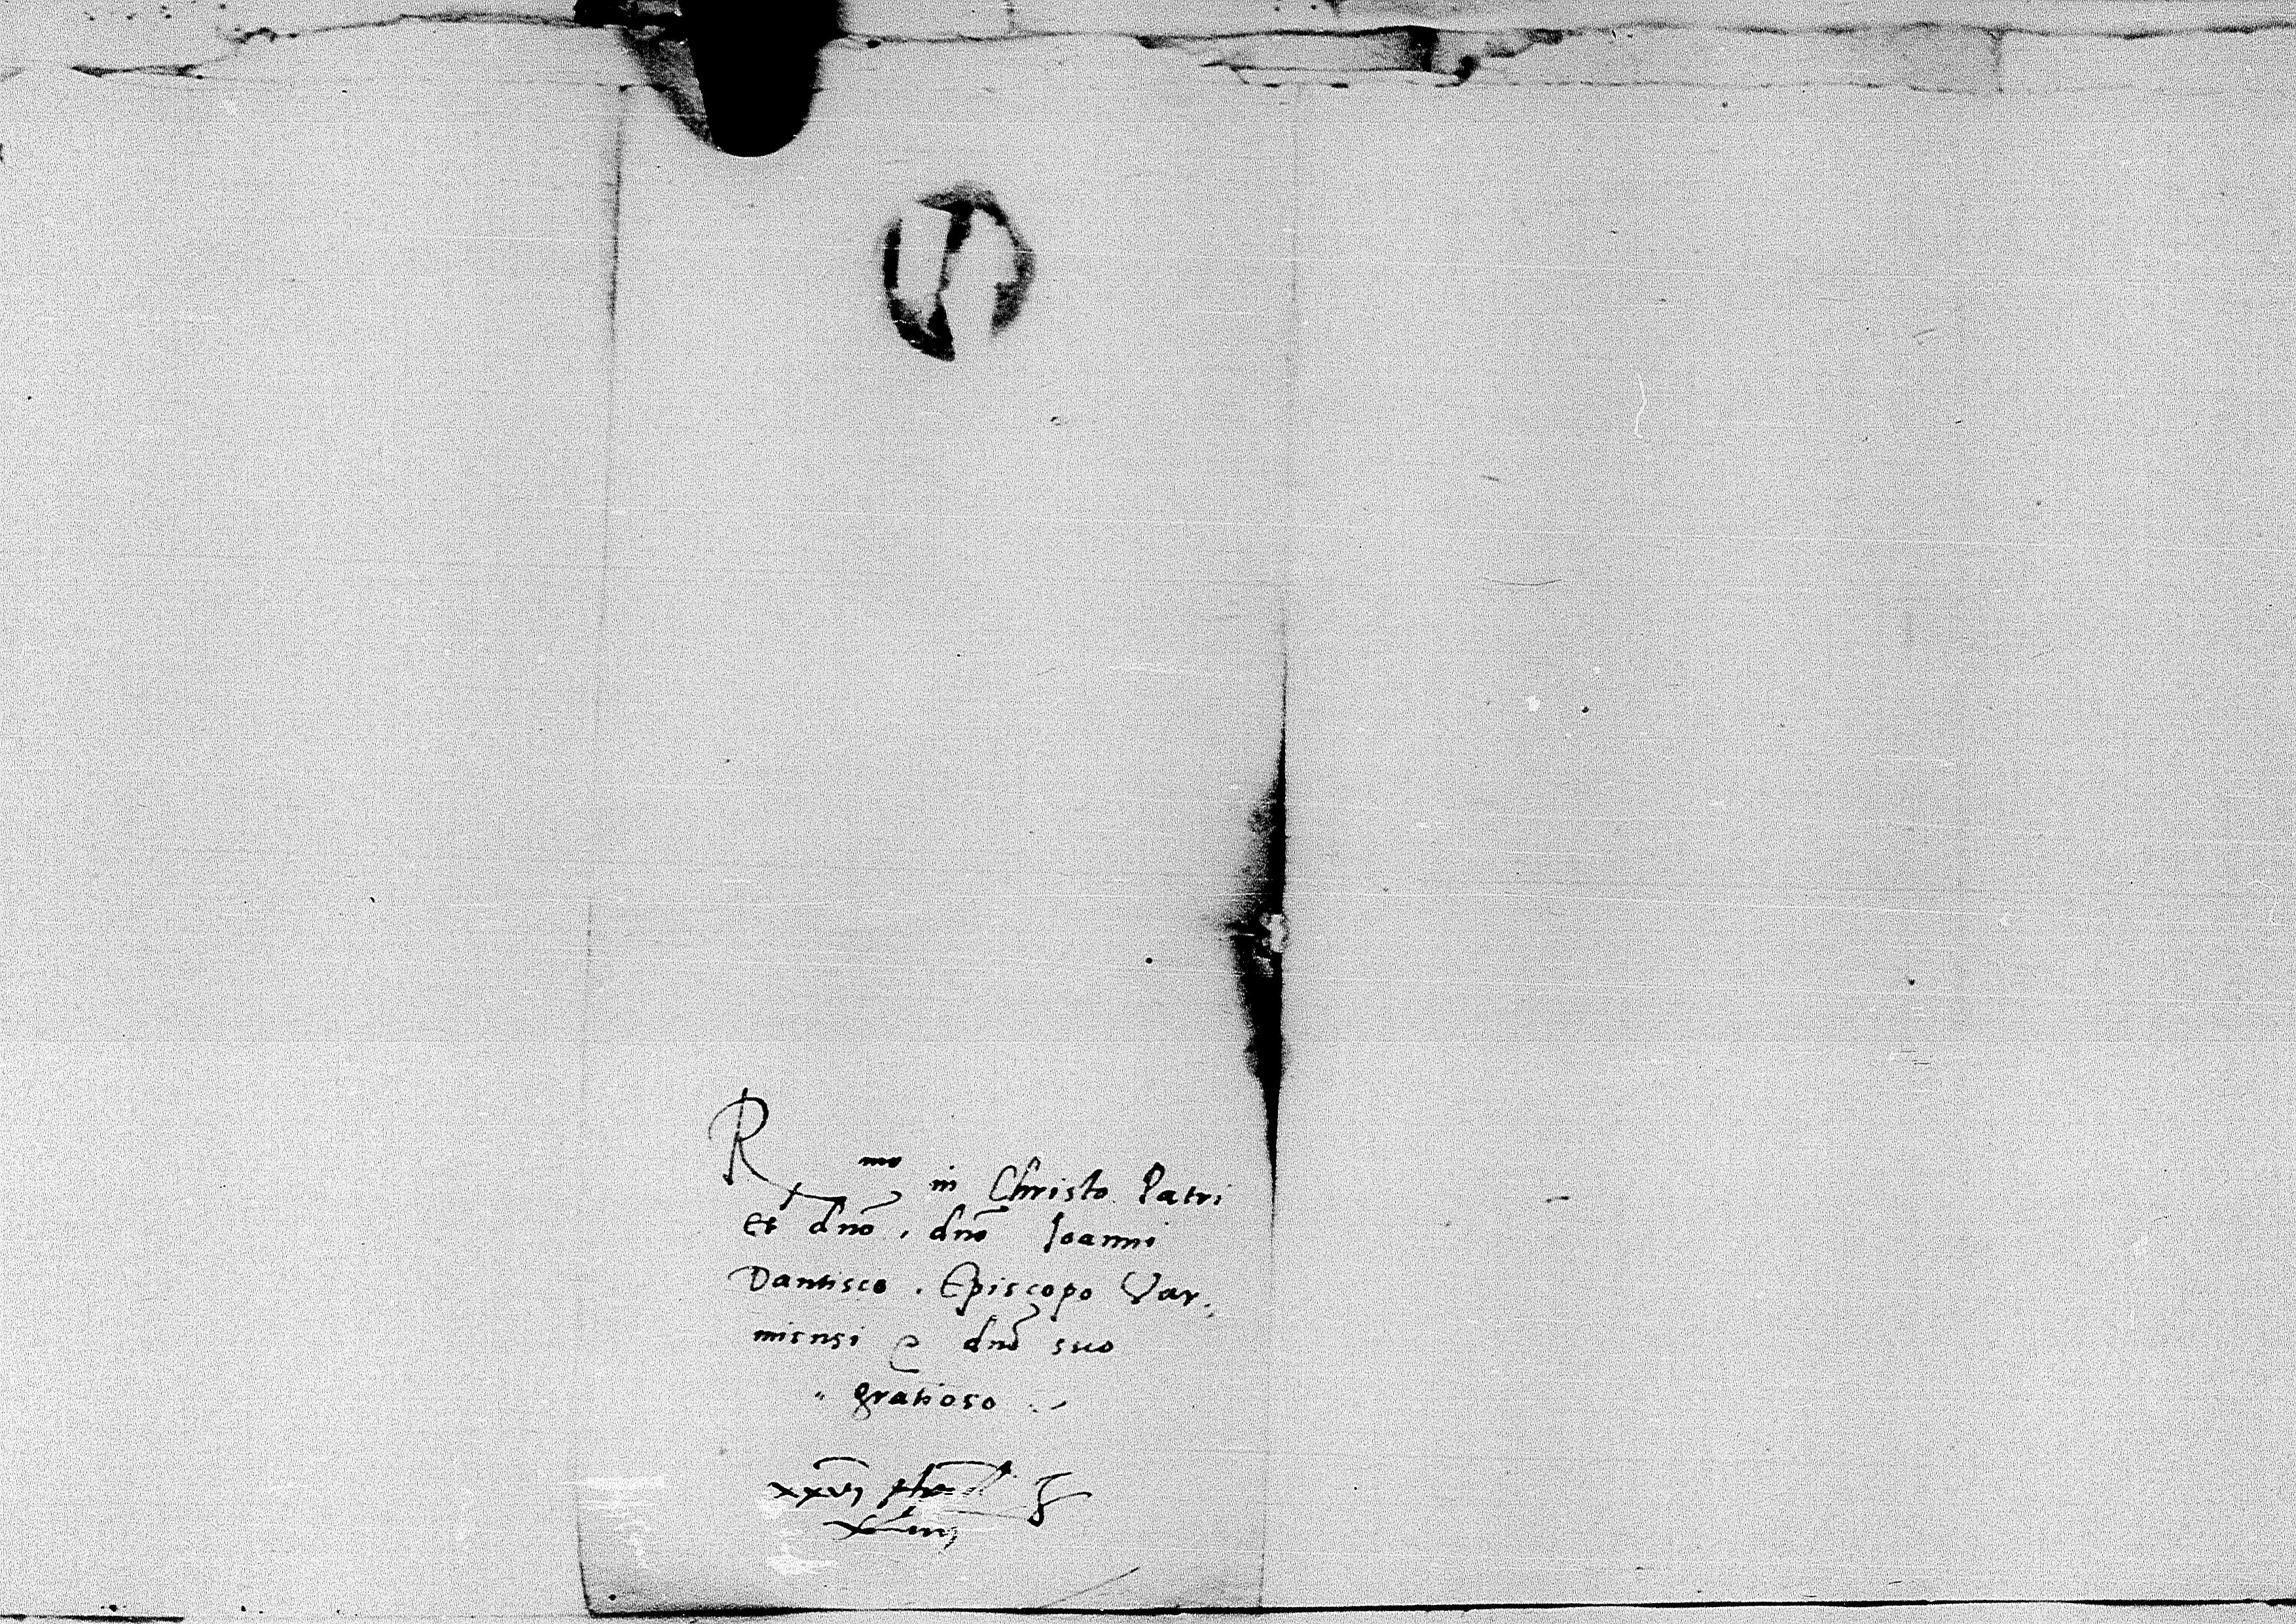 R mo in Christo Patri
Et dno, dno Ioanni
Dantisco. Episcopo Var„
miensi & dno suo
gratioso
xxvi